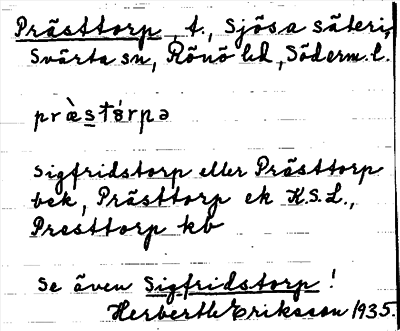 Prästtorp, t., Sjösa säteri,
Svärta sn, Rönö hd, Söderm. l.
præ̀stór̥pə
Sigfridstorp eller Prästtorp
bek, Prästtorp ek K.S.L.,
Presttorp kb
Se även Sigfridstorp!
Herbert Eriksson 1935.